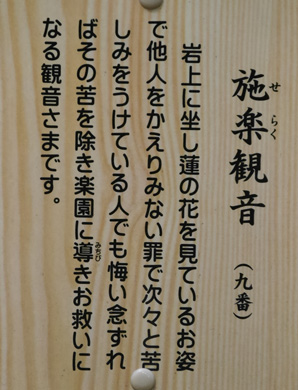 施楽観音（九番）
せらく
岩上に坐し蓮の花を見ているお姿
で他人をかえりみない罪で次々と苦
しみをうけている人でも悔い念ずれ
ばその苦を除き楽園に導きお救いに
みちび
なる観音さまです。